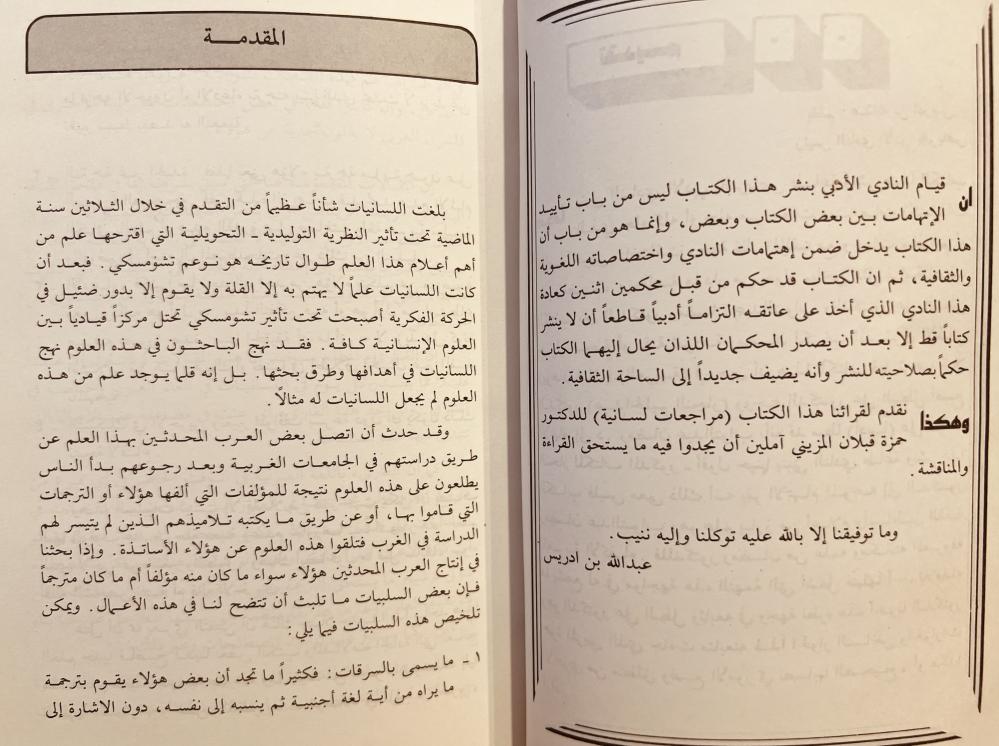 ان قيام النادي الأدبي بنشر هذا الكتاب ليس من باب تأييد
الإتهامات بين بعض الكتاب وبعض، وإنما هو من باب أن
هذا الكتاب يدخل ضمن إهتمامات النادي واختصاصاته اللغوية
والثقافية، ثم ان الكتاب قد حكم من قبل محكمين اثنين كعادة
هذا النادي الذي أخذ على عاتقه التزاماً أدبياً قاطعاً أن لا ينشر
كتاباً قط إلا بعد أن يصدر المحكمان اللذان يحال إليهما الكتاب
حكماً بصلاحيته للنشر وأنه يضيف جديداً إلى الساحة الثقافية.
وهكذا نقدم لقرائنا هذا الكتاب (مراجعات لسانية) للدكتور
حمزة قبلان المزيني آملين أن يجدوا فيه ما يستحق القراءة
والمناقشة.
وما توفيقنا إلا بالله عليه توكلنا وإليه ننيب.
عبدالله بن ادريس
المقدمة
بلغت اللسانيات شأناً عظيماً من التقدم في خلال الثلاثين سنة
الماضية تحت تأثير النظرية التوليدية ـ التحويلية التي اقترحها علم من
أهم أعلام هذا العلم طوال تاريخه هو نوعم تشومسكي. فبعد أن
كانت اللسانيات علماً لا يهتم به إلا القلة ولا يقوم إلا بدور ضئيل في
الحركة الفكرية أصبحت تحت تأثير تشومسكي تحتل مركزاً قيادياً بين
العلوم الإنسانية كافة. فقد نهج الباحثون في هذه العلوم نهج
اللسانيات في أهدافها وطرق بحثها. بل إنه قلما يوجد علم من هذه
العلوم لم يجعل اللسانيات له مثالاً.
وقد حدث أن اتصل بعض العرب المحدثين بهذا العلم عن
طريق دراستهم في الجامعات الغربية وبعد رجوعهم بدأ الناس
يطلعون على هذه العلوم نتيجة للمؤلفات التي ألفها هؤلاء أو الترجمات
التي قاموا بها، أو عن طريق ما يكتبه تلاميذهم الذين لم يتيسر لهم
الدراسة في الغرب فتلقوا هذه العلوم عن هؤلاء الأساتذة. وإذا بحثنا
في إنتاج العرب المحدثين هؤلاء سواء ما كان منه مؤلفاً أم ما كان مترجماً
فإن بعض السلبيات ما تلبث أن تتضح لنا في هذه الأعمال. ويمكن
تلخيص هذه السلبيات فيما يلي:
١ ـ ما يسمى بالسرقات: فكثيراً ما تجد أن بعض هؤلاء يقوم بترجمة
ما يراه من أية لغة أجنبية ثم ينسبه إلى نفسه، دون الاشارة إلى